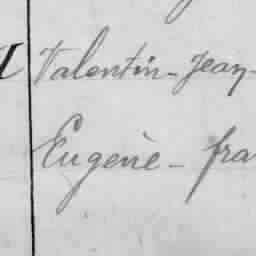 Valentin - Jean -
Eugène - fra